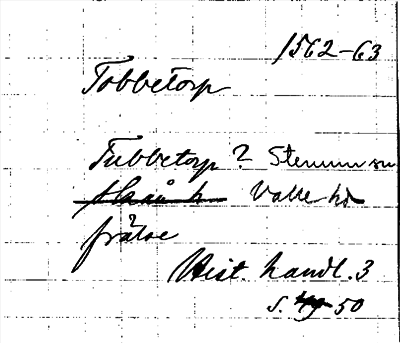 1562-63
Tobbetorp
Tubbetorp? Stenum sn
Valle hd
frälse
Hist. handl. 3
s. 49 50